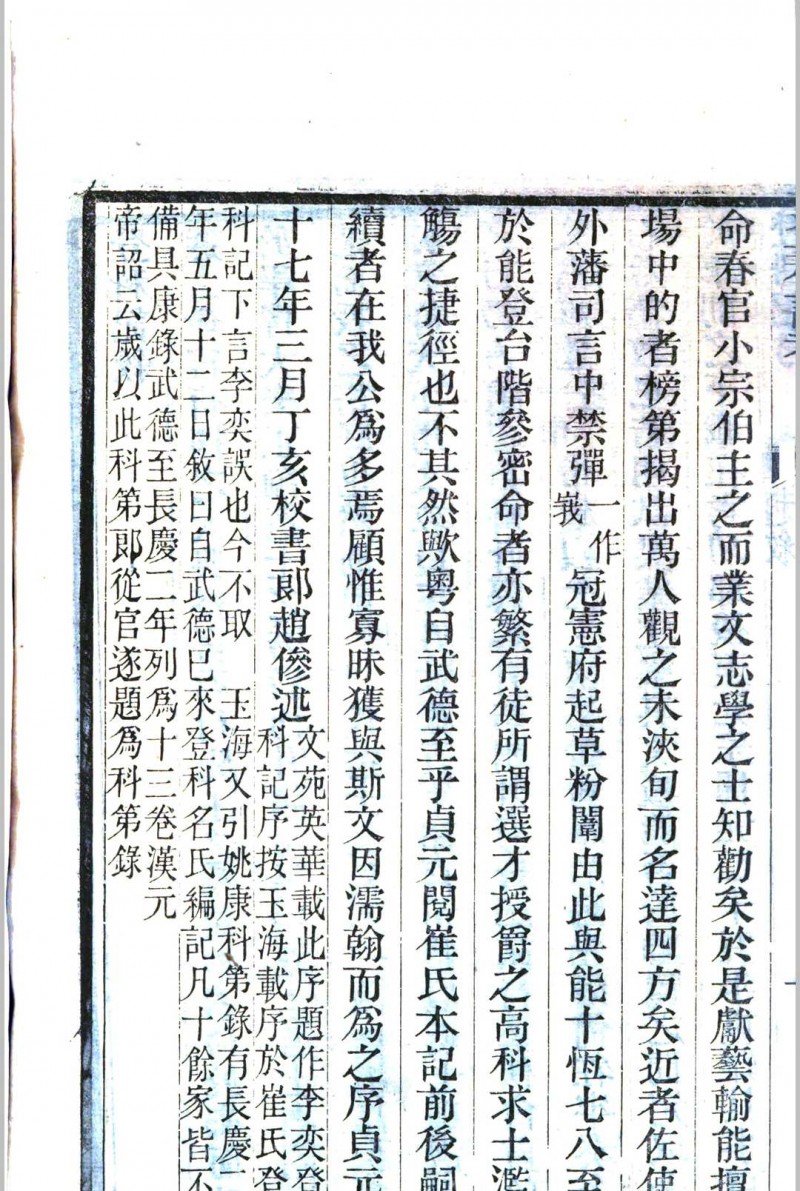 命春官小宗伯主之而業文志學之士知勸矣於是獻藝輸能擅
場中的者榜第揭出萬人觀之未浹旬而名達四方矣近者佐使
外藩司言中禁彈一作峩冠憲府起草粉闈由此與能十恆七八至
於能登台階參密命者亦繁有徒所謂選才授爵之高科求士濫
觴之捷徑也不其然歟粤自武德至乎貞元閱崔氏本記前後嗣
續者在我公爲多焉顧惟寡昧獲與斯文因濡翰而爲之序貞元
十七年三月丁亥校書郎趙傪述
文苑英華載此序題作李奕登
科記序按玉海載序於崔氏登
科記下言李奕誤也今不取　玉海又引姚康科第錄有長慶二
年五月十二日敘曰自武德已來登科名氏編記凡十餘家皆不
備具康錄武德至長慶二年列爲十三卷漢元
帝詔云歲以此科第郎從官遂題爲科第錄